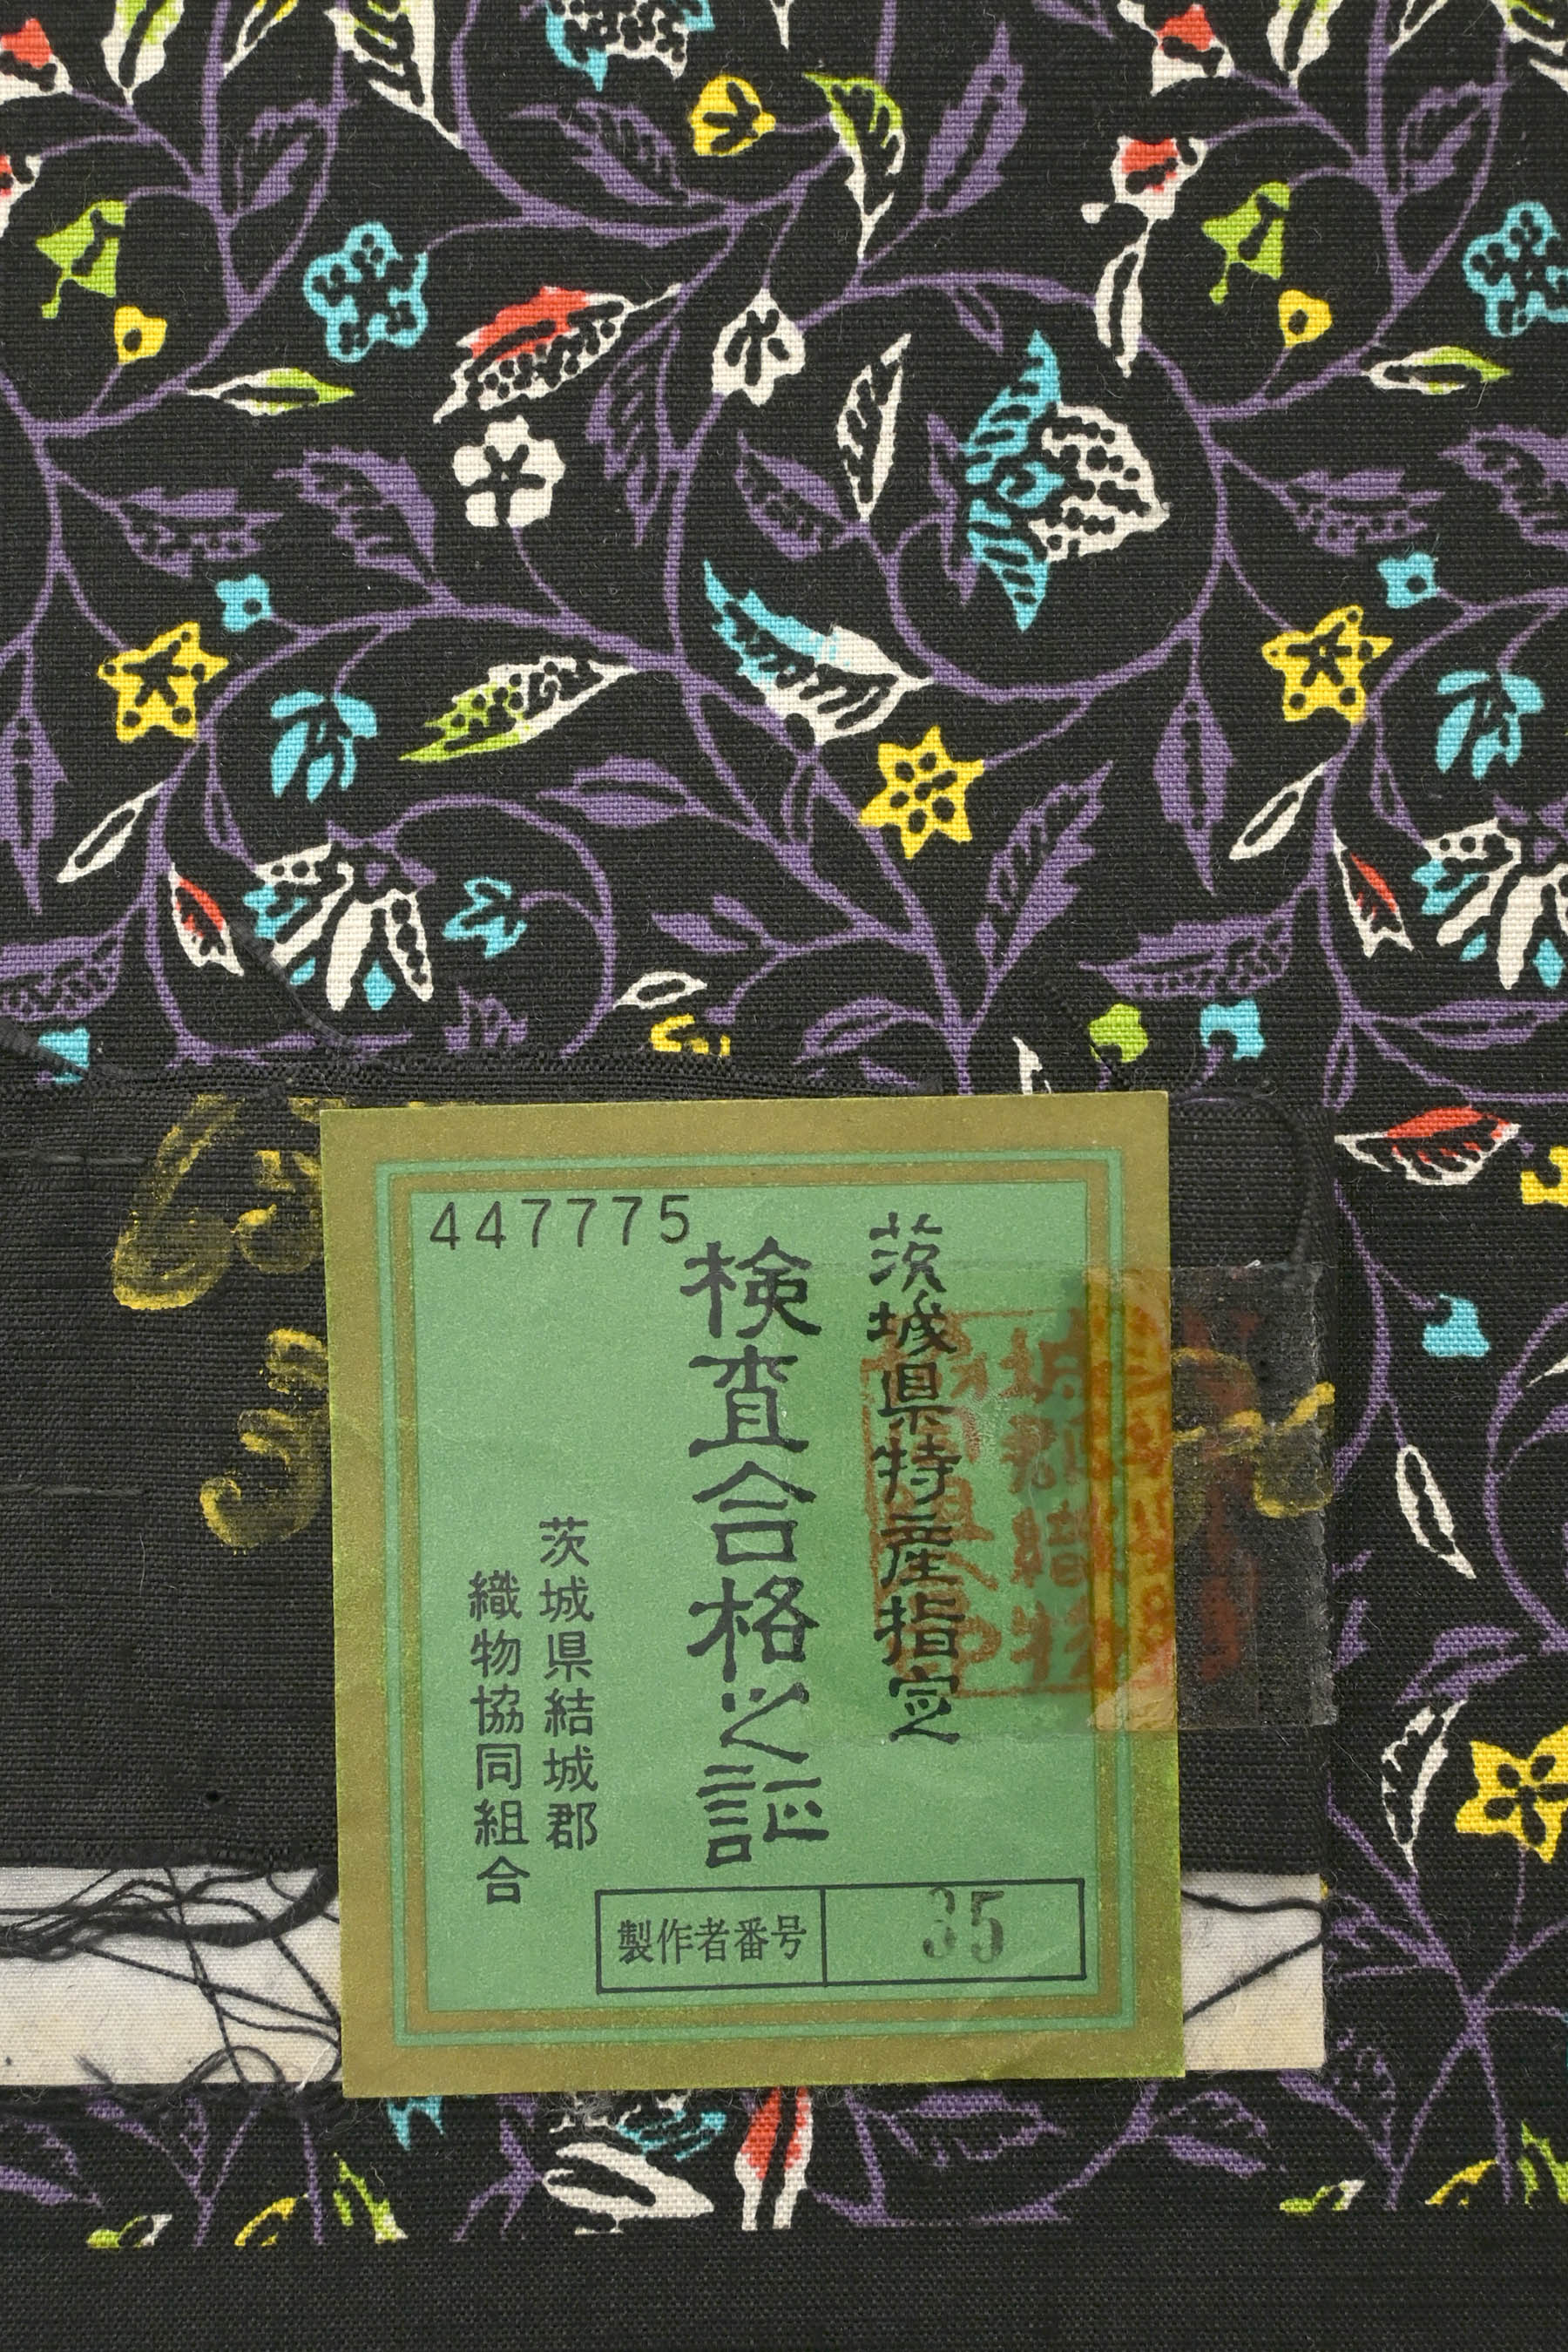 447775
茨城県特産指定
検査合格之証
茨城県結城郡
織物協同組合
製作者番号
35